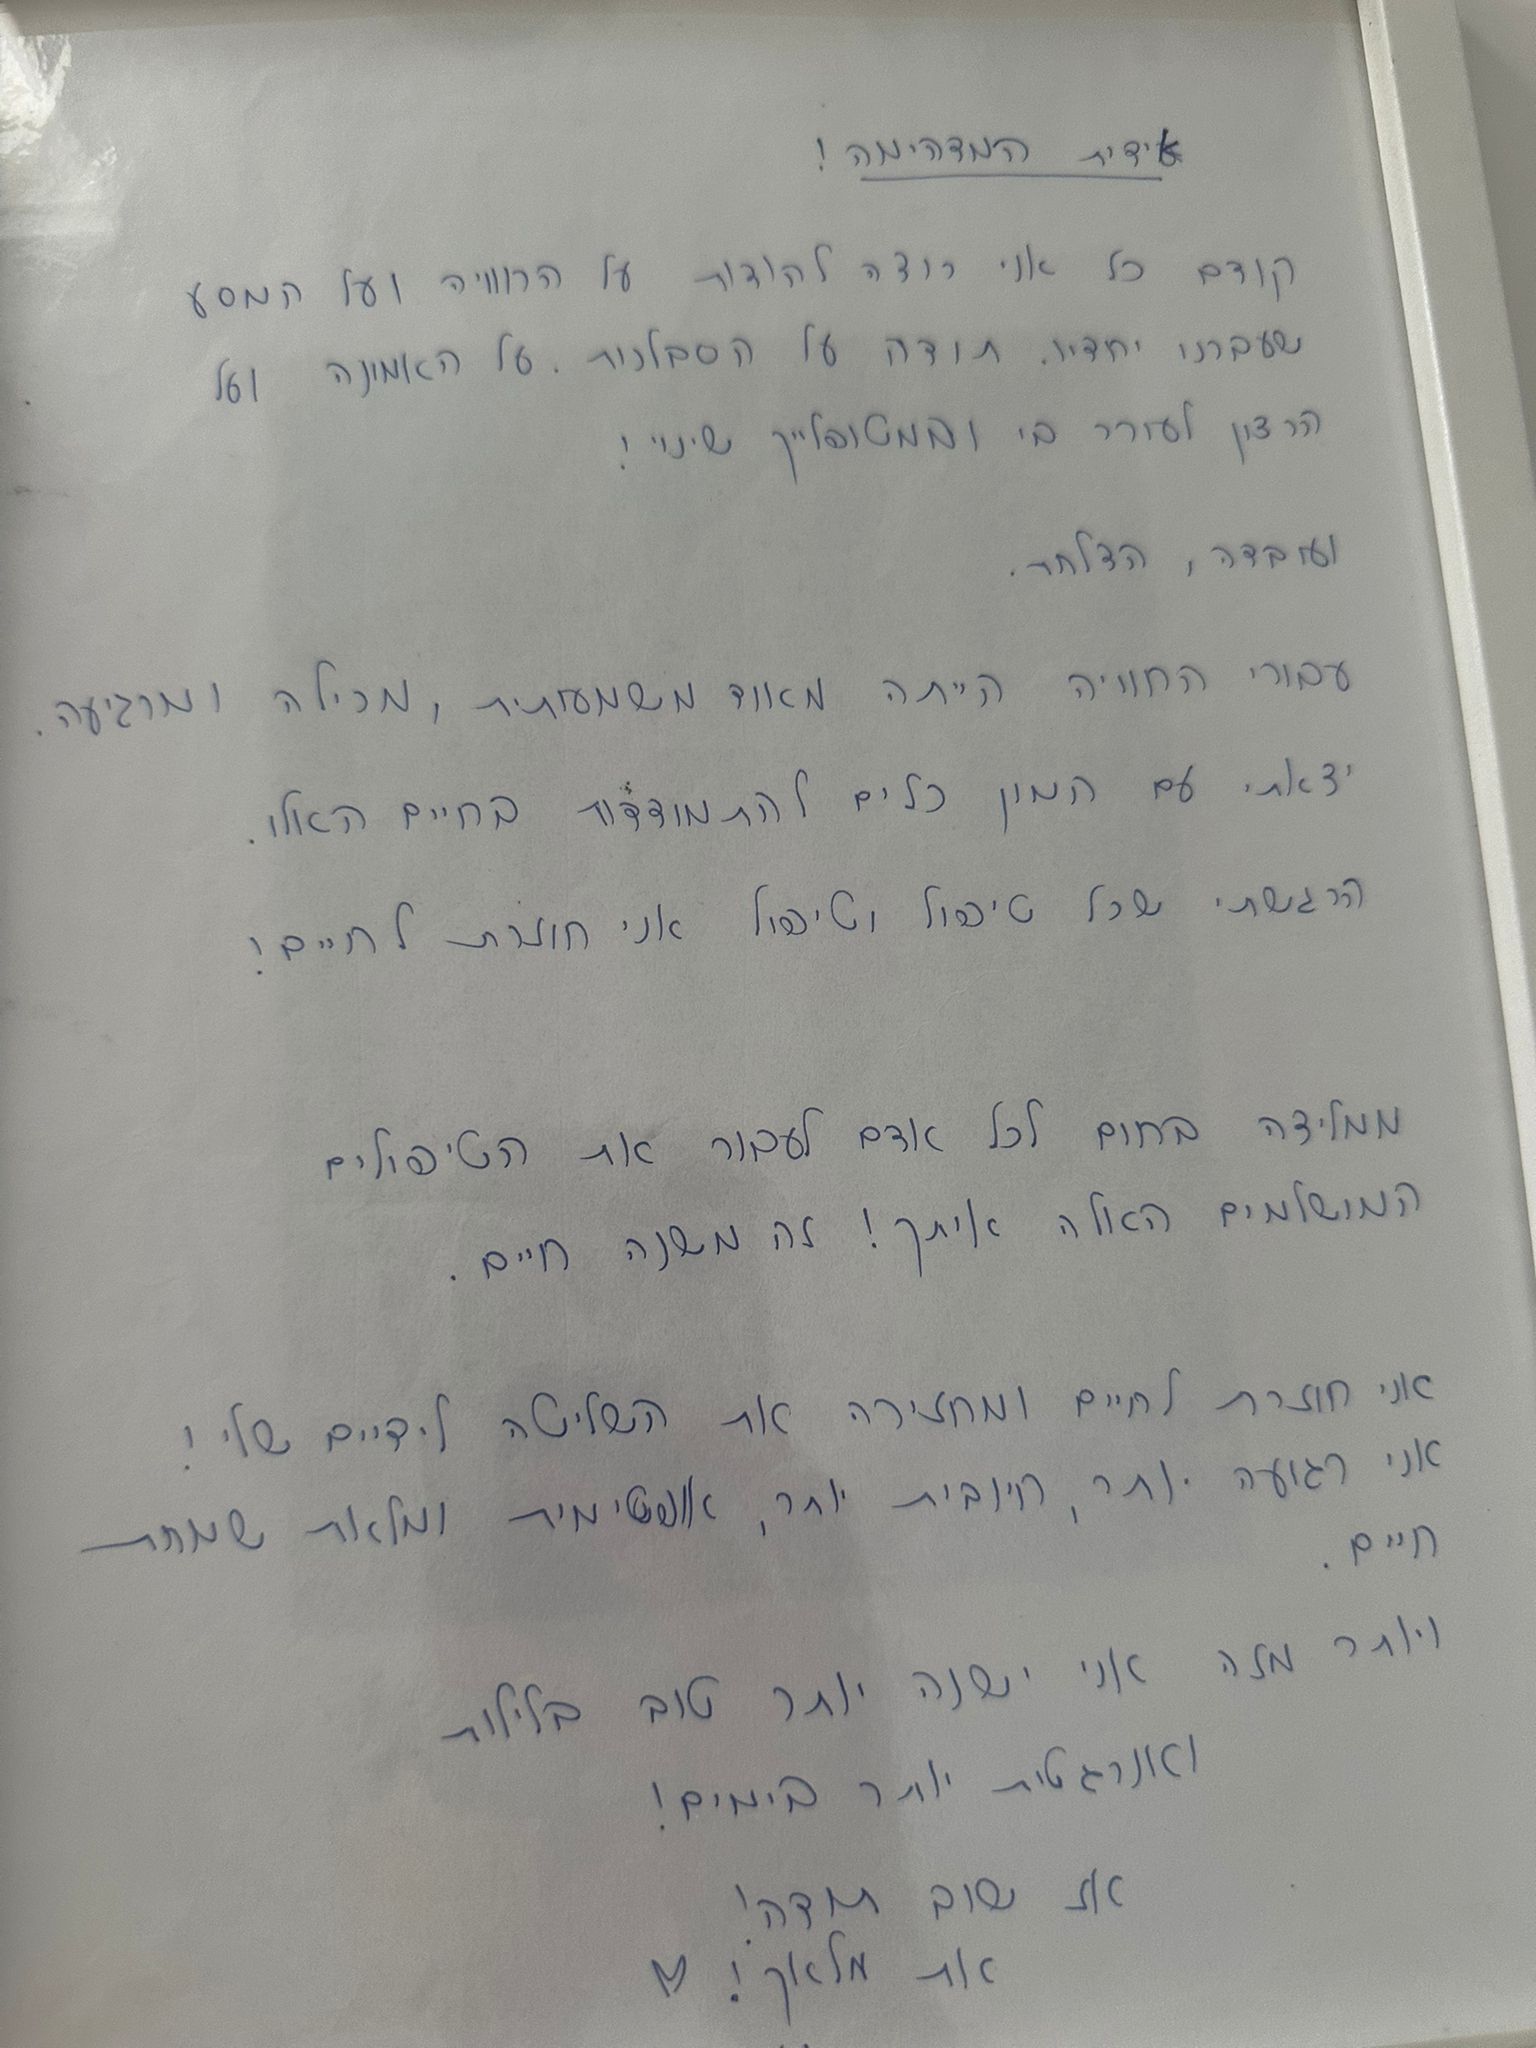 אידית המדהימה!
קודם כל אני רוצה להודות על החוויה ועל המסע
שעברנו יחדיו. תודה על הסבלנות. על האמינה ועל
הרצון לעורר בי ובמטופלייך שינוי!
ועובדה, הצלחת.
עבורי החוויה הייתה מאוד משמעותית, מכילה ומרגיעה.
יצאתי עם המון כלים להתמודדות בחיים האלו.
הרגשתי שכל טיפול וטיפול אני חוזרת לחיים!
ממליצה בחום לכל אדם לעבור את הטיפולים
המושלמים האלה איתך! זה משנה חיים.
אני חוזרת לחיים ומחזירה את השליטה לידיים שלי!
אני רגועה יותר, חיובית יותר, אופטימית ומלאת שמחת
חיים.
ויותר מזה אני ישנה יותר טוב בלילות
ואנרגטית יותר בימים!
אז שוב תודה!
את מלאך!